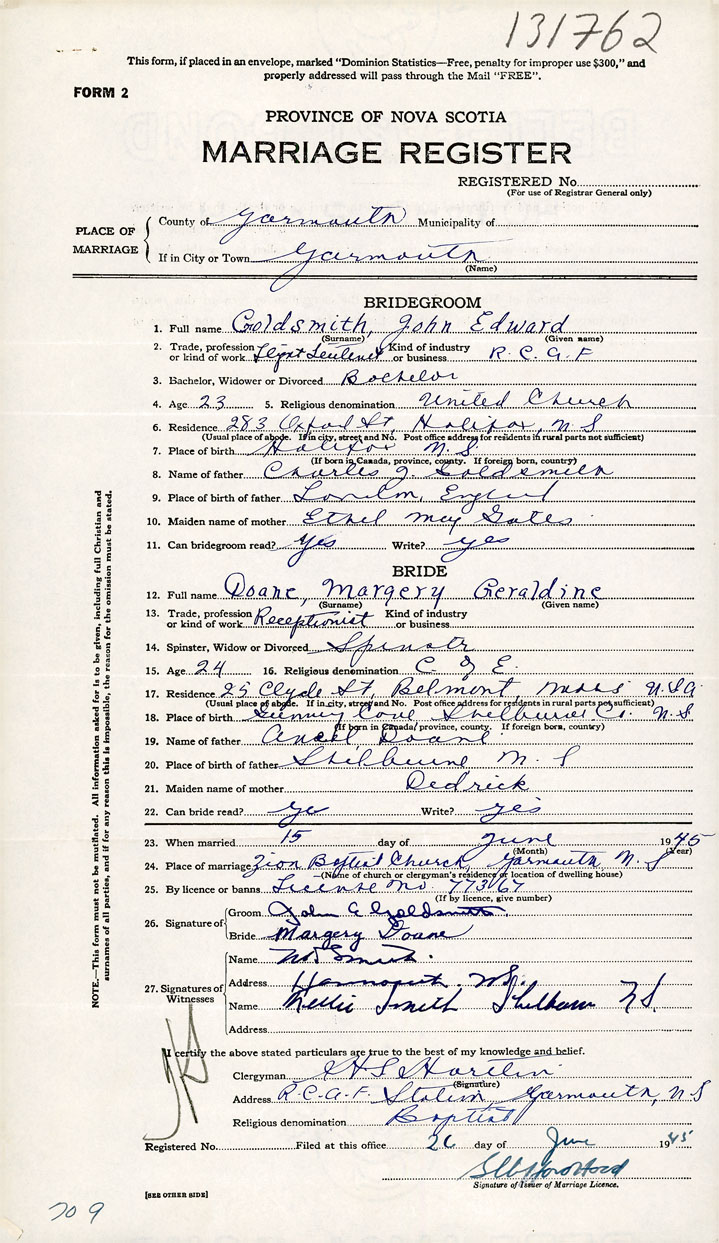 131762
This form, if placed in an envelope, marked "Dominion Statistics—Free, penalty for improper use $300," and
properly addressed will pass through the Mail "FREE".
FORM 2
PROVINCE OF NOVA SCOTIA
MARRIAGE REGISTER
REGISTERED No.
(For use of Registrar General only)
PLACE OF MARRIAGE
County of Yarmouth Municipality of
If in City or Town Yarmouth
(Name)
BRIDEGROOM
1. Full name Goldsmith, John Edward
(Surname) (Given name)
2. Trade, profession or kind of work Kind of industry or business R.C.A.F
3. Bachelor, Widower or Divorced Bachelor
4. Age 23 5. Religious denomination United Church
6. Residence 283 Oxford St, Halifax, N.S
(Usual place of abode. If in city, street and No. Post office address for residents in rural parts not sufficient)
7. Place of birth Halifax N.S.
(If born in Canada, province, county. If foreign born, country)
8. Name of father Charles J. Goldsmith
9. Place of birth of father London, England
10. Maiden name of mother Ethel May Gates
11. Can bridegroom read? Yes Write? yes
BRIDE
12. Full name Doane, Margery Geraldine
(Surname) (Given name)
13. Trade, profession or kind of work Receptionist Kind of industry or business
14. Spinster, Widow or Divorced
15. Age 24 16. Religious denomination C of E.
17. Residence 25 Clyde St, Belmont, Mass U.S.A
(Usual place of abode. If in city, street and No. Post office address for residents in rural parts not sufficient)
18. Place of birth Cove Shelburne Co. N.S
(If born in Canada, province, county. If foreign born, country)
19. Name of father Doane
20. Place of birth of father Shelburne N.S
21. Maiden name of mother Dedrick
22. Can bride read? Write? yes
23. When married 15 day of June 1945
(Month) (Year)
24. Place of marriage Zion Baptist Church, Yarmouth N.S
(Name of church or clergyman's residence or location of dwelling house)
25. By licence or banns License No. 773167
(If by licence, give number)
26. Signature of
Groom John E Goldsmith
Bride Margery Doane
27. Signatures of Witnesses
Name Smith
Address N.S.
Name Nellie Smith N.S.
Address
I certify the above stated particulars are true to the best of my knowledge and belief.
Clergyman
(Signature)
Address R.C.A.F. Station Yarmouth, N.S
Religious denomination Baptist
Registered No. Filed at this office day of June 1945
Signature of Issuer of Marriage Licence.
[SEE OTHER SIDE]
709
NOTE.—This form must not be mutilated. All information asked for is to be given, including full Christian and
surnames of all parties, and if for any reason this is impossible, the reason for the omission must be stated.